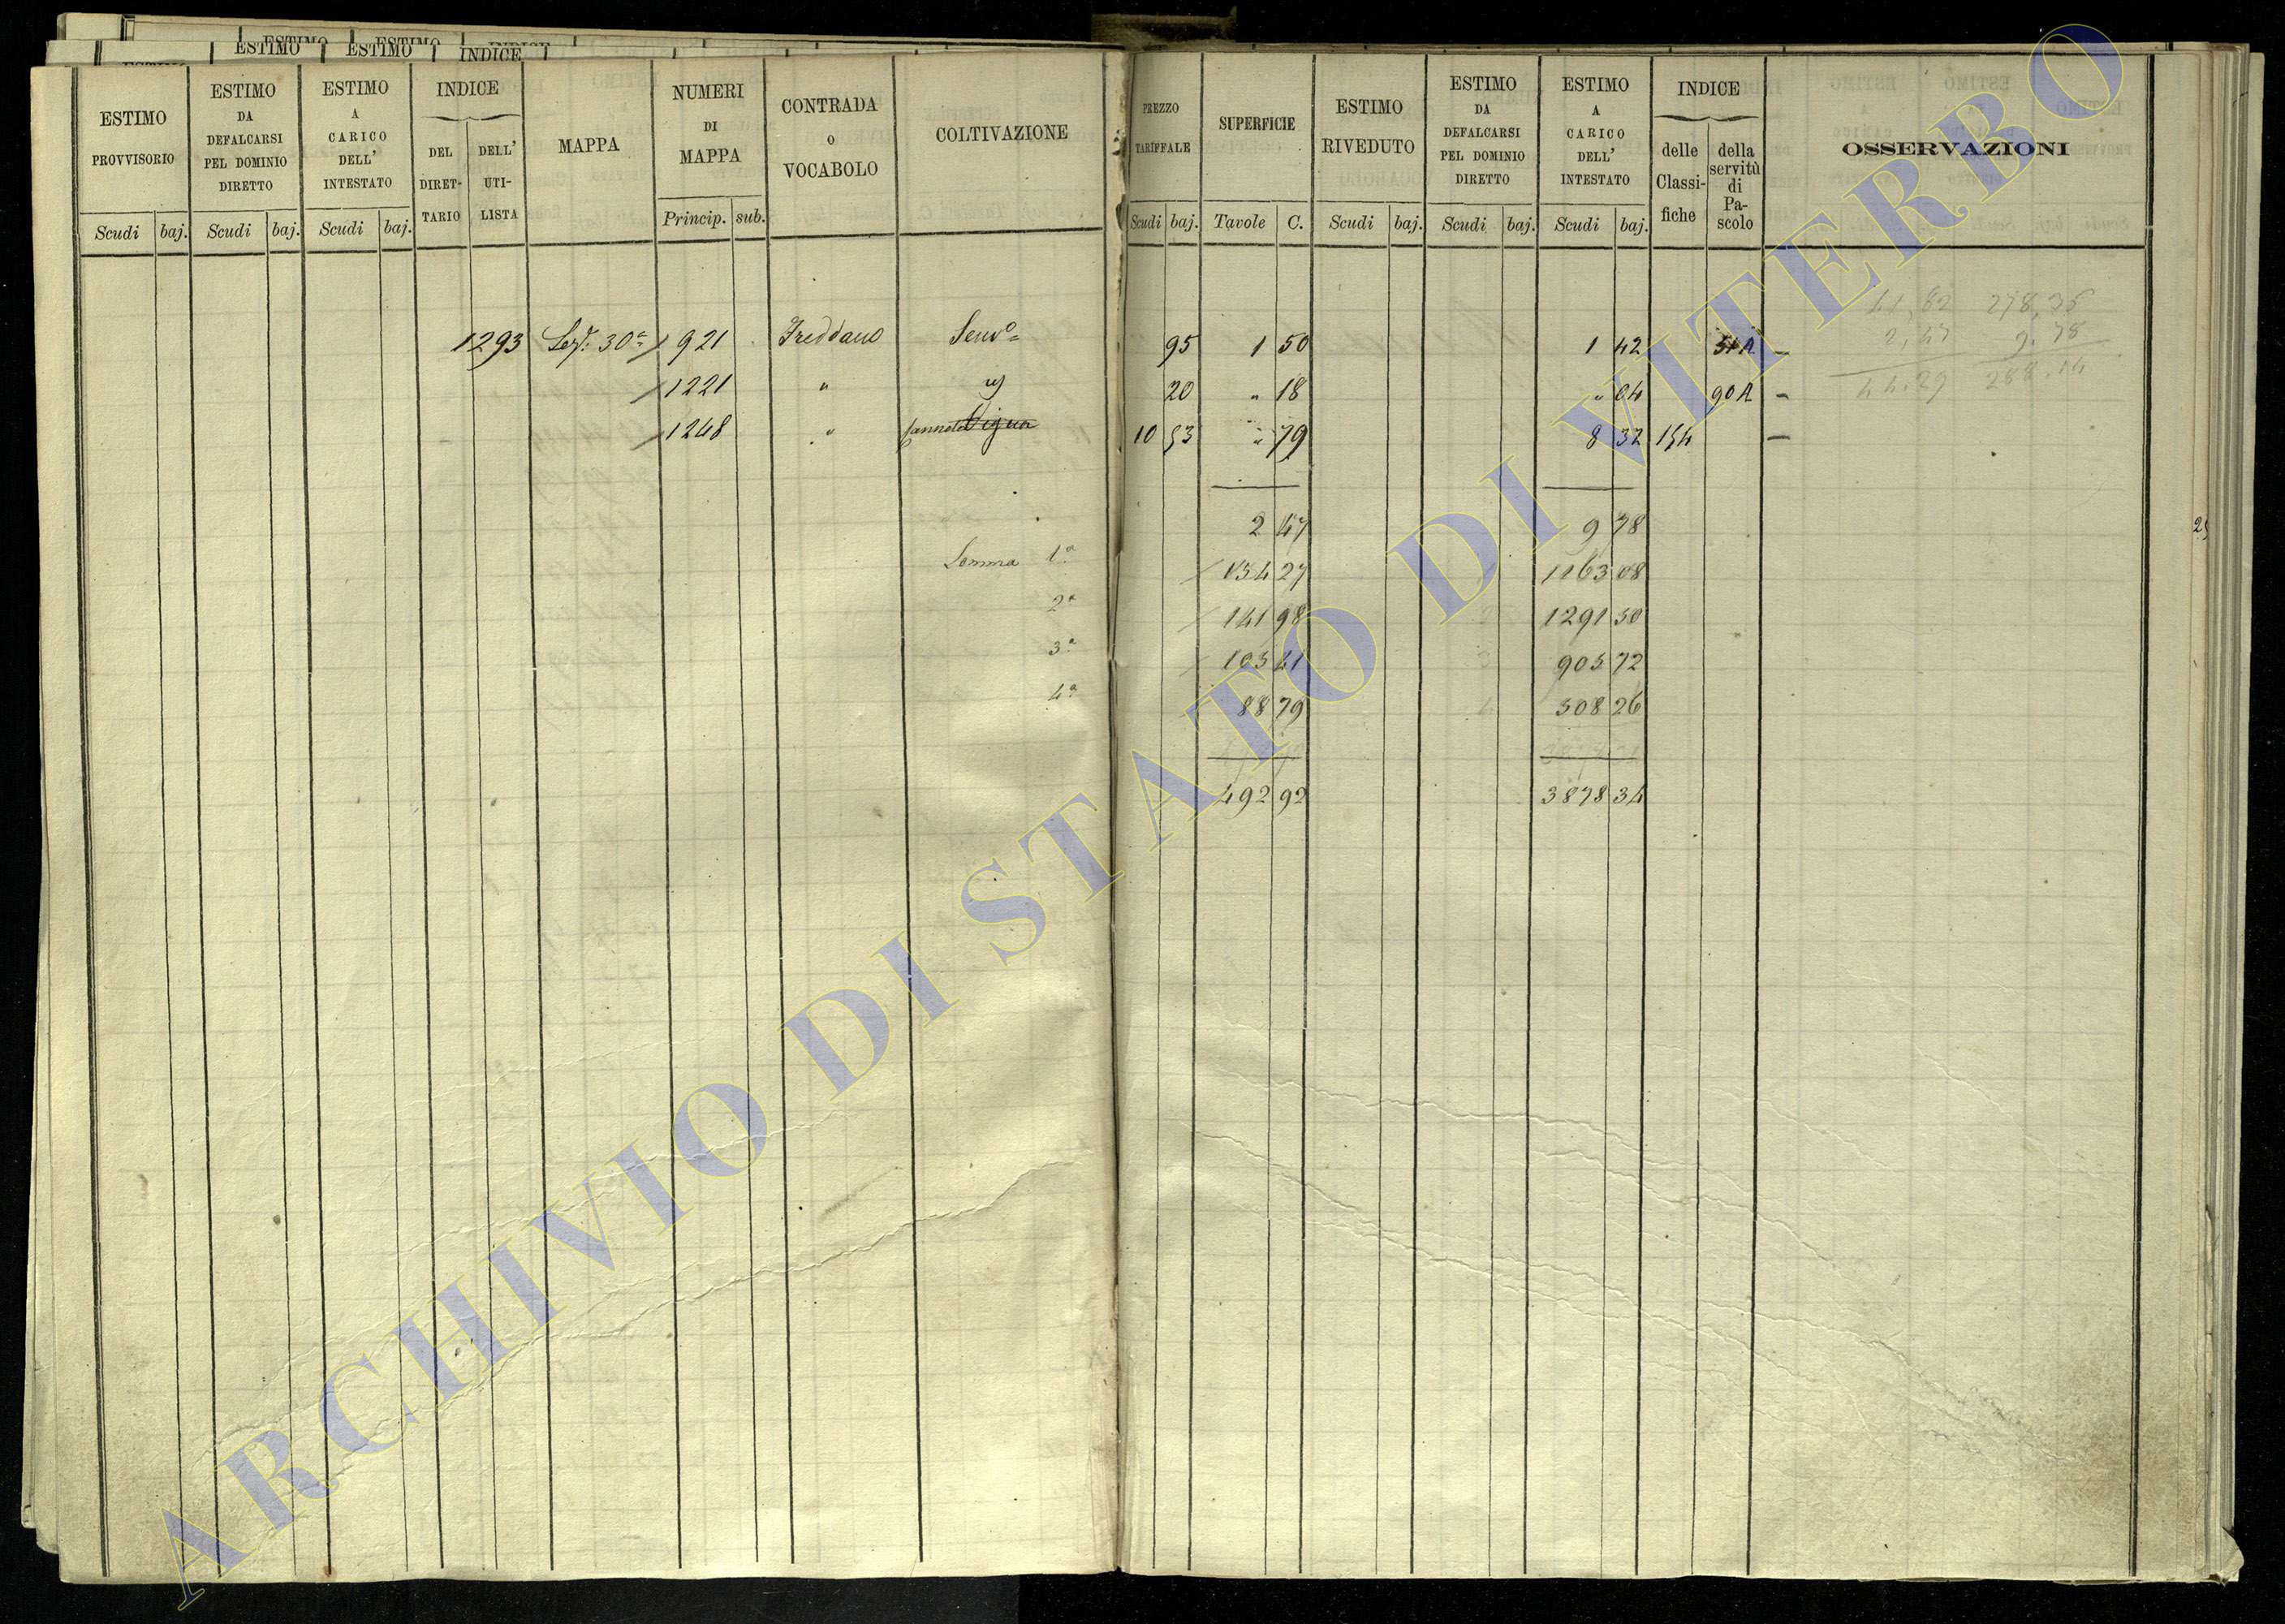 ESTIMO PROVVISORIO | ESTIMO DA DEFALCARSI PEL DOMINIO DIRETTO | ESTIMO A CARICO DELL' INTESTATO | INDICE DEL DIRET-TARIO | DELL' UTI-LISTA | MAPPA | NUMERI DI MAPPA | CONTRADA o VOCABOLO | COLTIVAZIONE | PREZZO TARIFFALE | SUPERFICIE | ESTIMO RIVEDUTO | ESTIMO DA DEFALCARSI PEL DOMINIO DIRETTO | ESTIMO A CARICO DELL' INTESTATO | INDICE delle Classi-fiche | della servitù di Pa-scolo | OSSERVAZIONI
Scudi baj. Scudi baj. Scudi baj. Princip. sub. Scudi baj. Tavole C. Scudi baj. Scudi baj. Scudi baj.
41,82 278,36
2,47 9.78
44.29 288.14
1293 Sez. 30a 921 Freddano Semvo 95 1 50 1 42 51A
1221 " 20 " 18 " 04 90A
1248 " Canneto Vigna 10 53 " 79 8 32 154
2 47 9 78
Somma 1a 154 27 1163 08
2a 141 98 1291 50
3a 105 41 905 72
4a 88 79 508 26
492 92 3878 34
ARCHIVIO DI STATO DI VITERBO